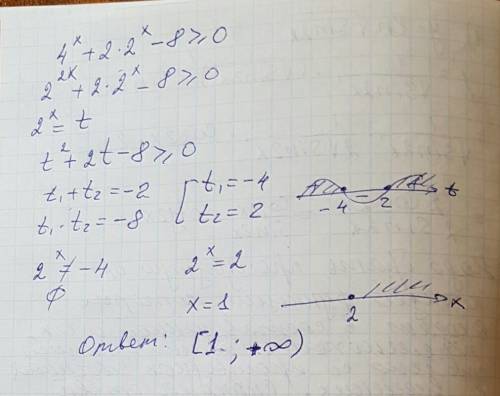 4^x + 2·2^x − 8 ⩾ 0
2^2x + 2·2^x − 8 ⩾ 0
2^x = t
t^2 + 2t − 8 ⩾ 0
t₁ + t₂ = −2 [ t₁ = −4
t₁·t₂ = −8 t₂ = 2
−4 2 t
2^x ≠ −4 2^x = 2
∅ x = 1
2 x
Ответ: [1 ; +∞)